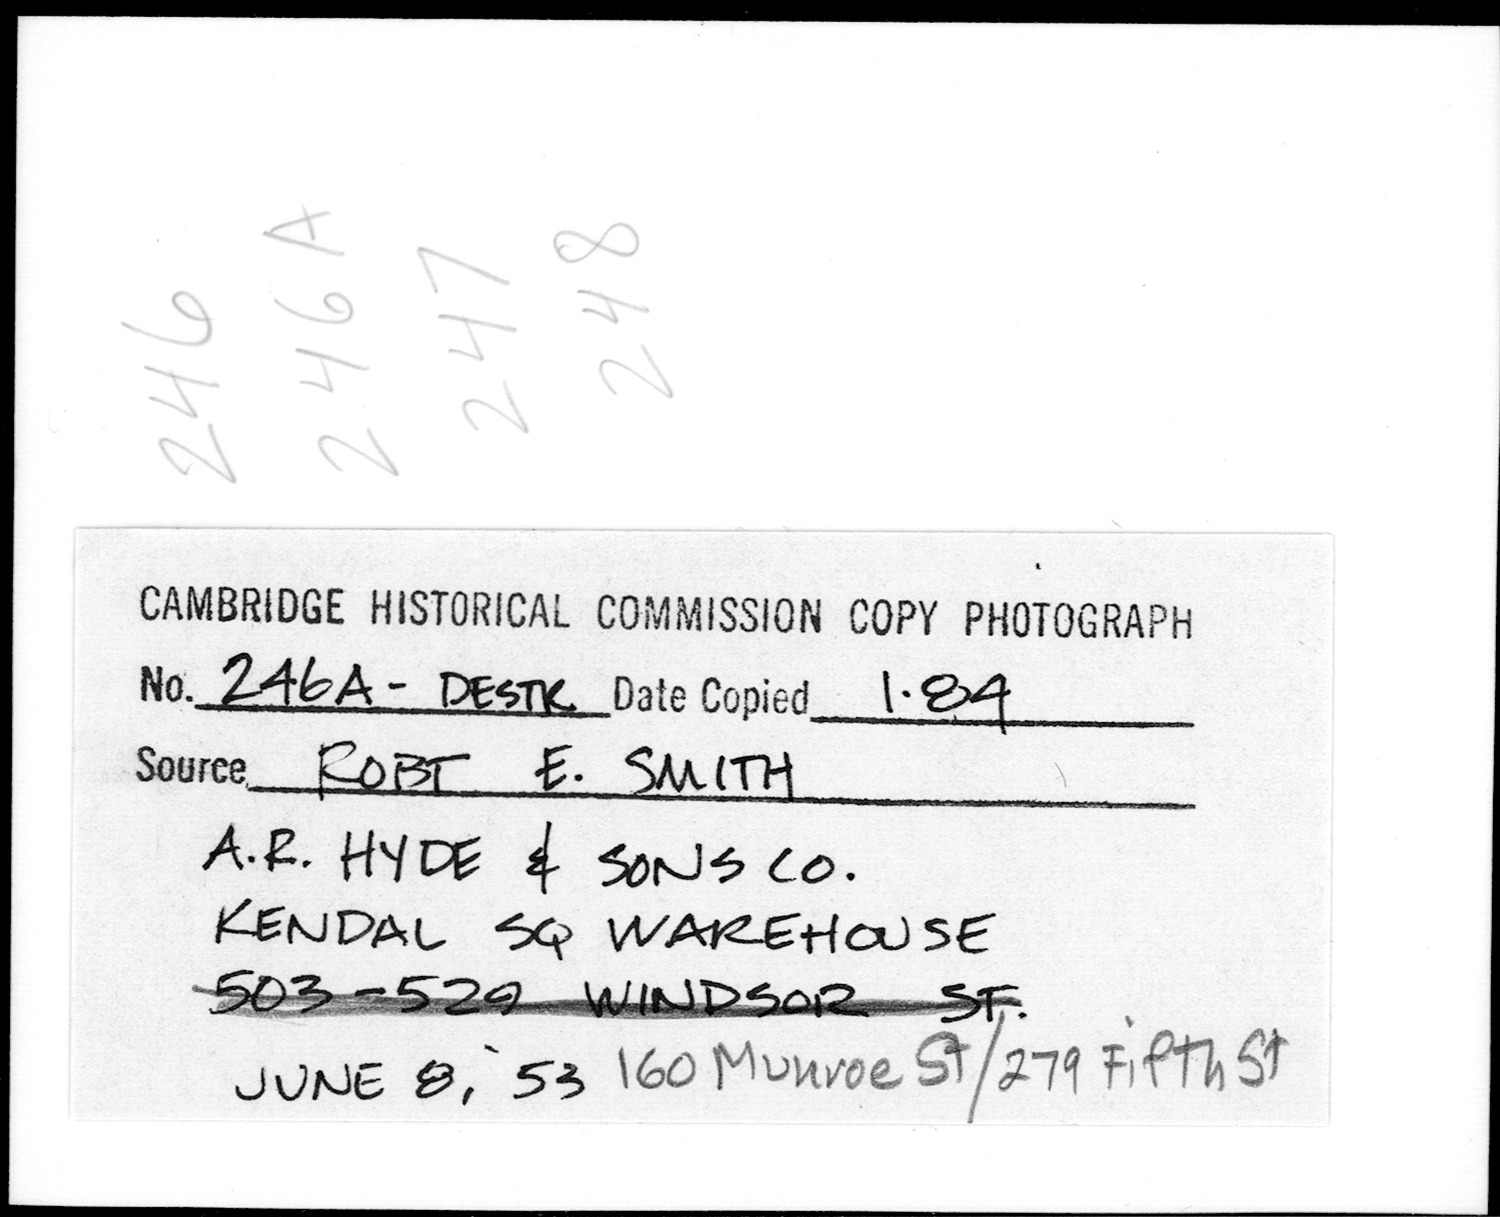 246
246A
247
248
CAMBRIDGE HISTORICAL COMMISSION COPY PHOTOGRAPH
No. 246A - DESTR Date Copied 1.84
Source ROBT E. SMITH
A.R. HYDE & SONS CO.
KENDAL SQ WAREHOUSE
503-529 WINDSOR ST.
JUNE 8, '53 160 Munroe St/279 Fifth St